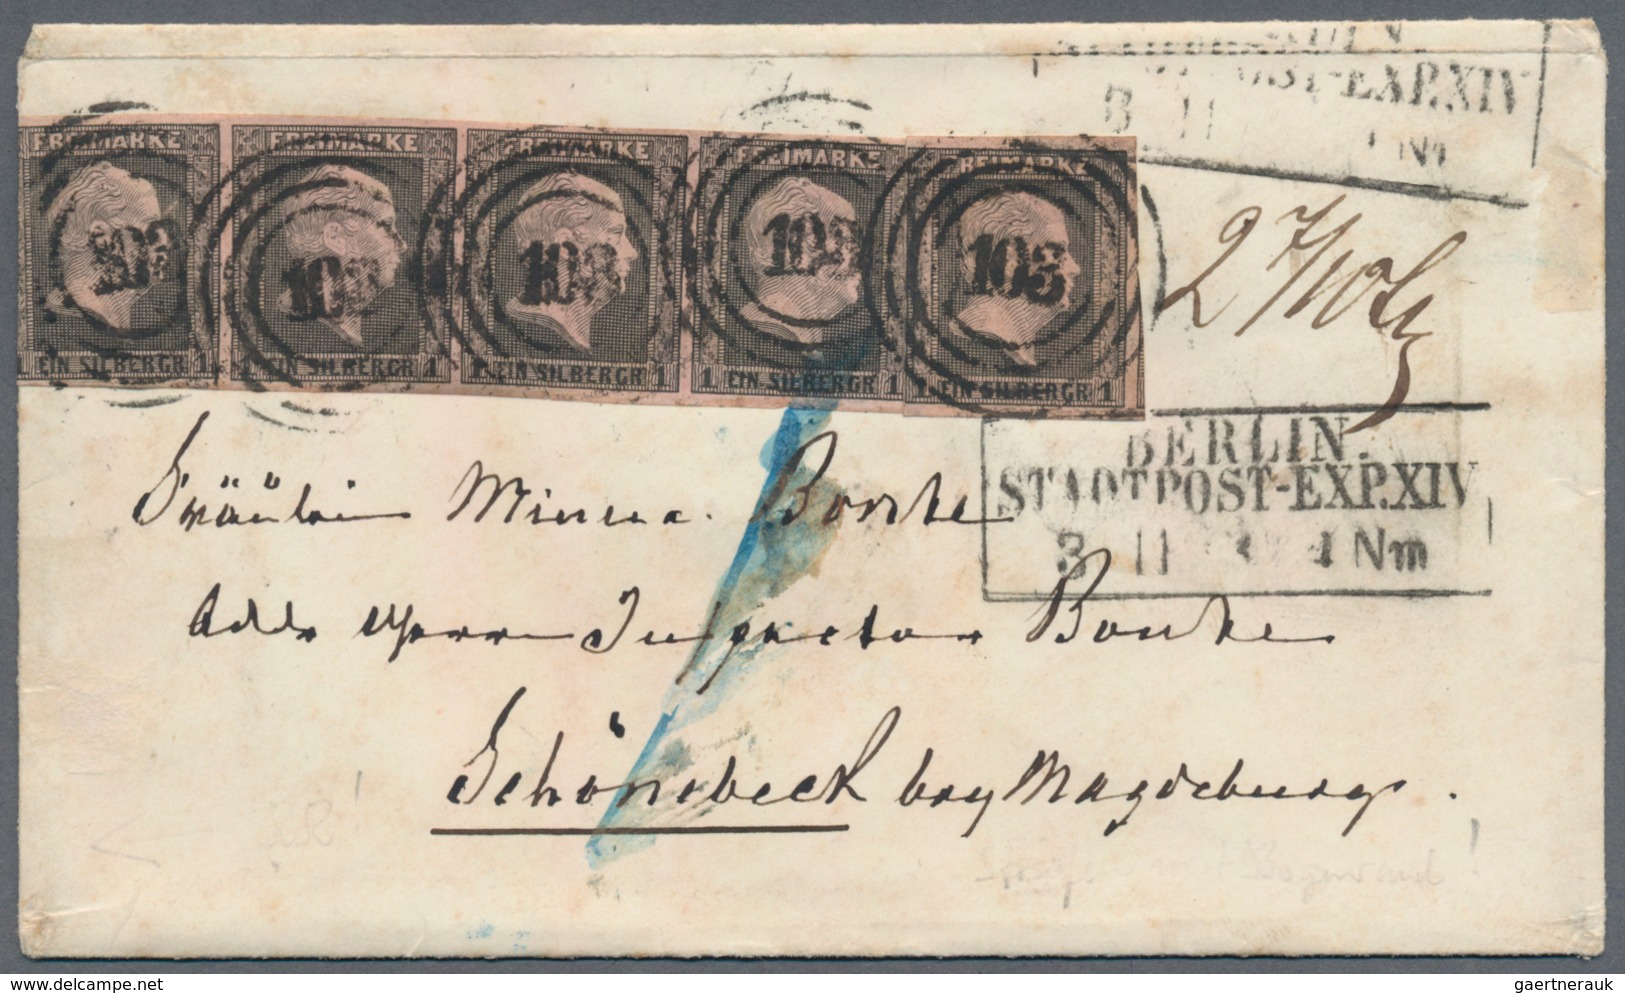 POST-EXP.XIV
3 11 Nm
FREIMARKE FREIMARKE FREIMARKE FREIMARKE FREIMARKE
103 103 103 103 103
1 EIN SILBERGR 1 1 EIN SILBERGR 1 1 EIN SILBERGR 1 1 EIN SILBERGR 1 1 EIN SILBERGR 1
BERLIN.
STADTPOST-EXP.XIV
3 11 Nm
Fräulein Minna Bonke
Herrn Inspector Bonke
Schönebeck bey Magdeburg.
www.delcampe.net
gaertnerauk